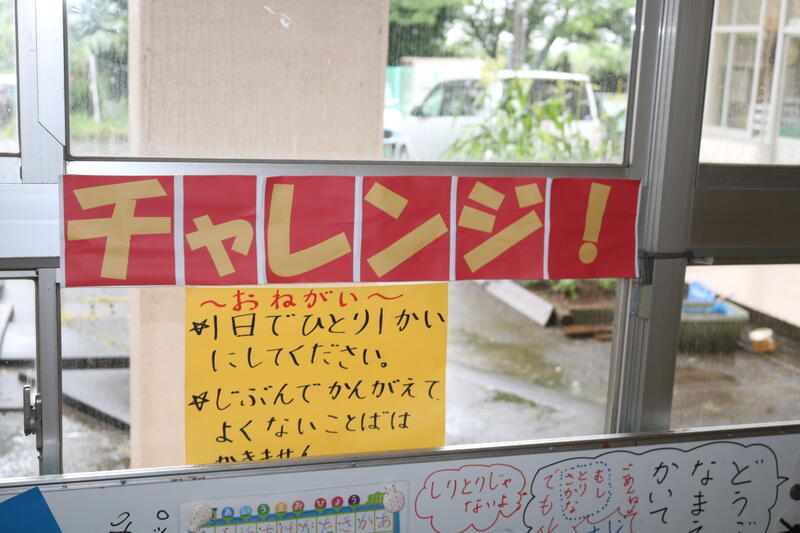 チャレンジ!
～おねがい～
☆1日でひとり1かい
にしてください。
☆じぶんでかんがえて、
よくないことばは
かきません
しりとりじゃ
ないよ
どうぶ
なまえ
かいて
むし
とり
さかな
でも